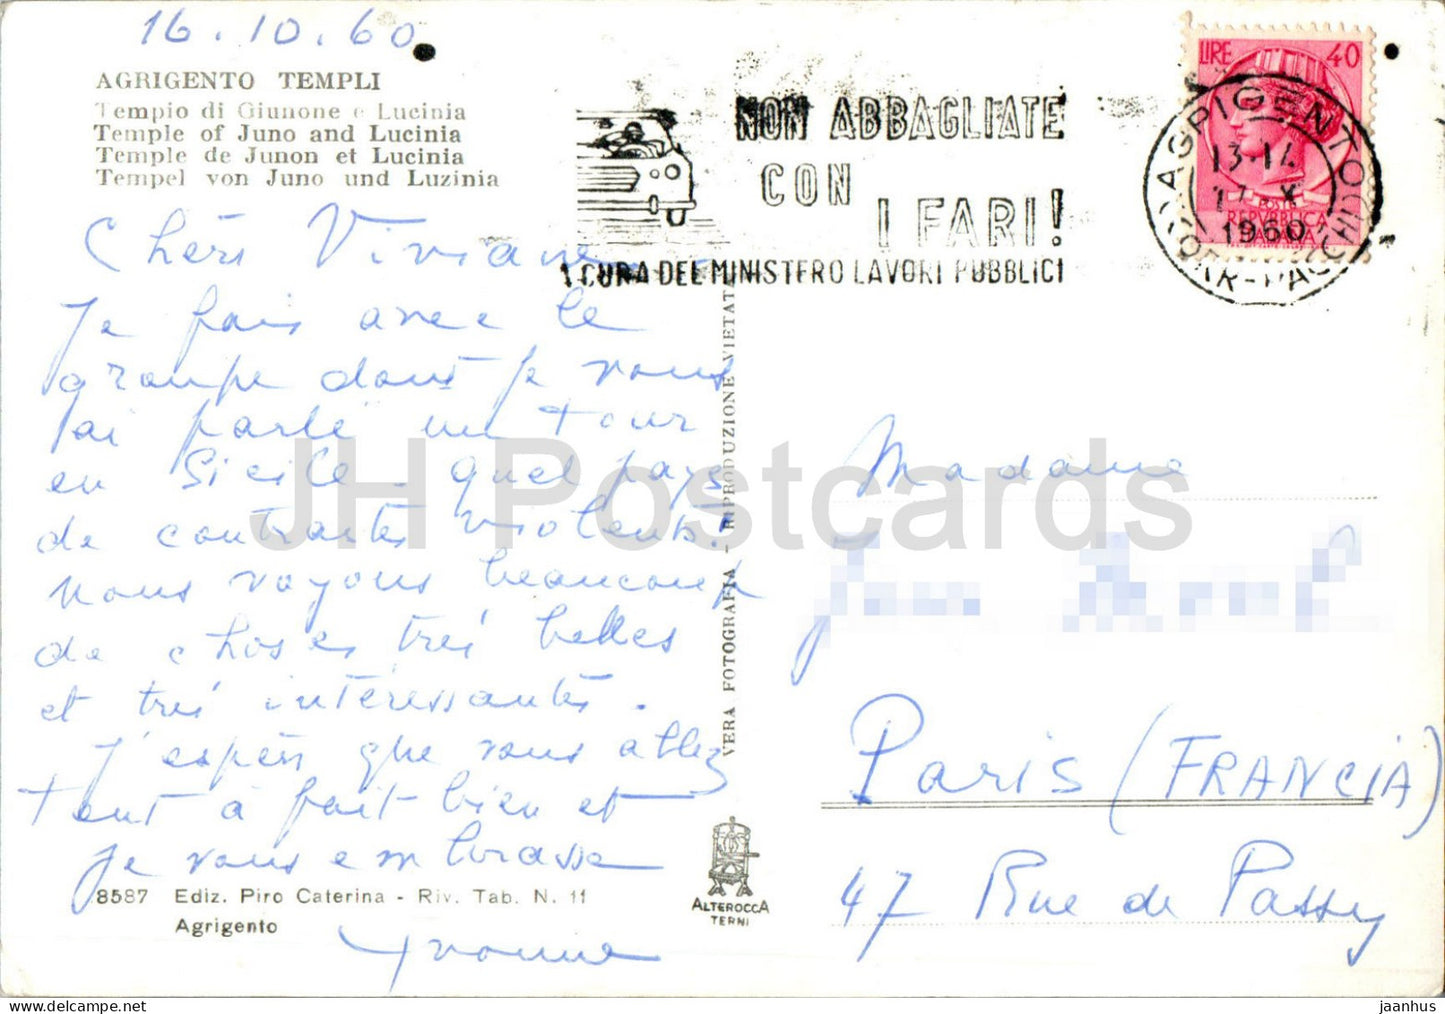 16.10.60
AGRIGENTO TEMPLI
Tempio di Giunone e Lucinia
Temple of Juno and Lucinia
Temple de Junon et Lucinia
Tempel von Juno und Luzinia
Chère Viviane
Je fais avec le
groupe dont je vous
ai parlé un tour
en Sicile. quel pays
de contrastes violents!
Nous voyons beaucoup
de choses très belles
et très intéressantes.
J'espère que vous allez
tout à fait bien et
je vous embrasse
Yvonne
8587 Ediz. Piro Caterina - Riv. Tab. N. 11
Agrigento
VERA FOTOGRAFIA - RIPRODUZIONE VIETATA
ALTEROCCA
TERNI
NON ABBAGLIATE
CON
I FARI!
A CURA DEL MINISTERO LAVORI PUBBLICI
LIRE 40
POSTE
REPVBBLICA
ITALIANA
AGRIGENTO
13-14
17 X
1960
Madame
Paris (FRANCIA)
47 Rue de Passy
JH Postcards
jaanhus
delcampe.net